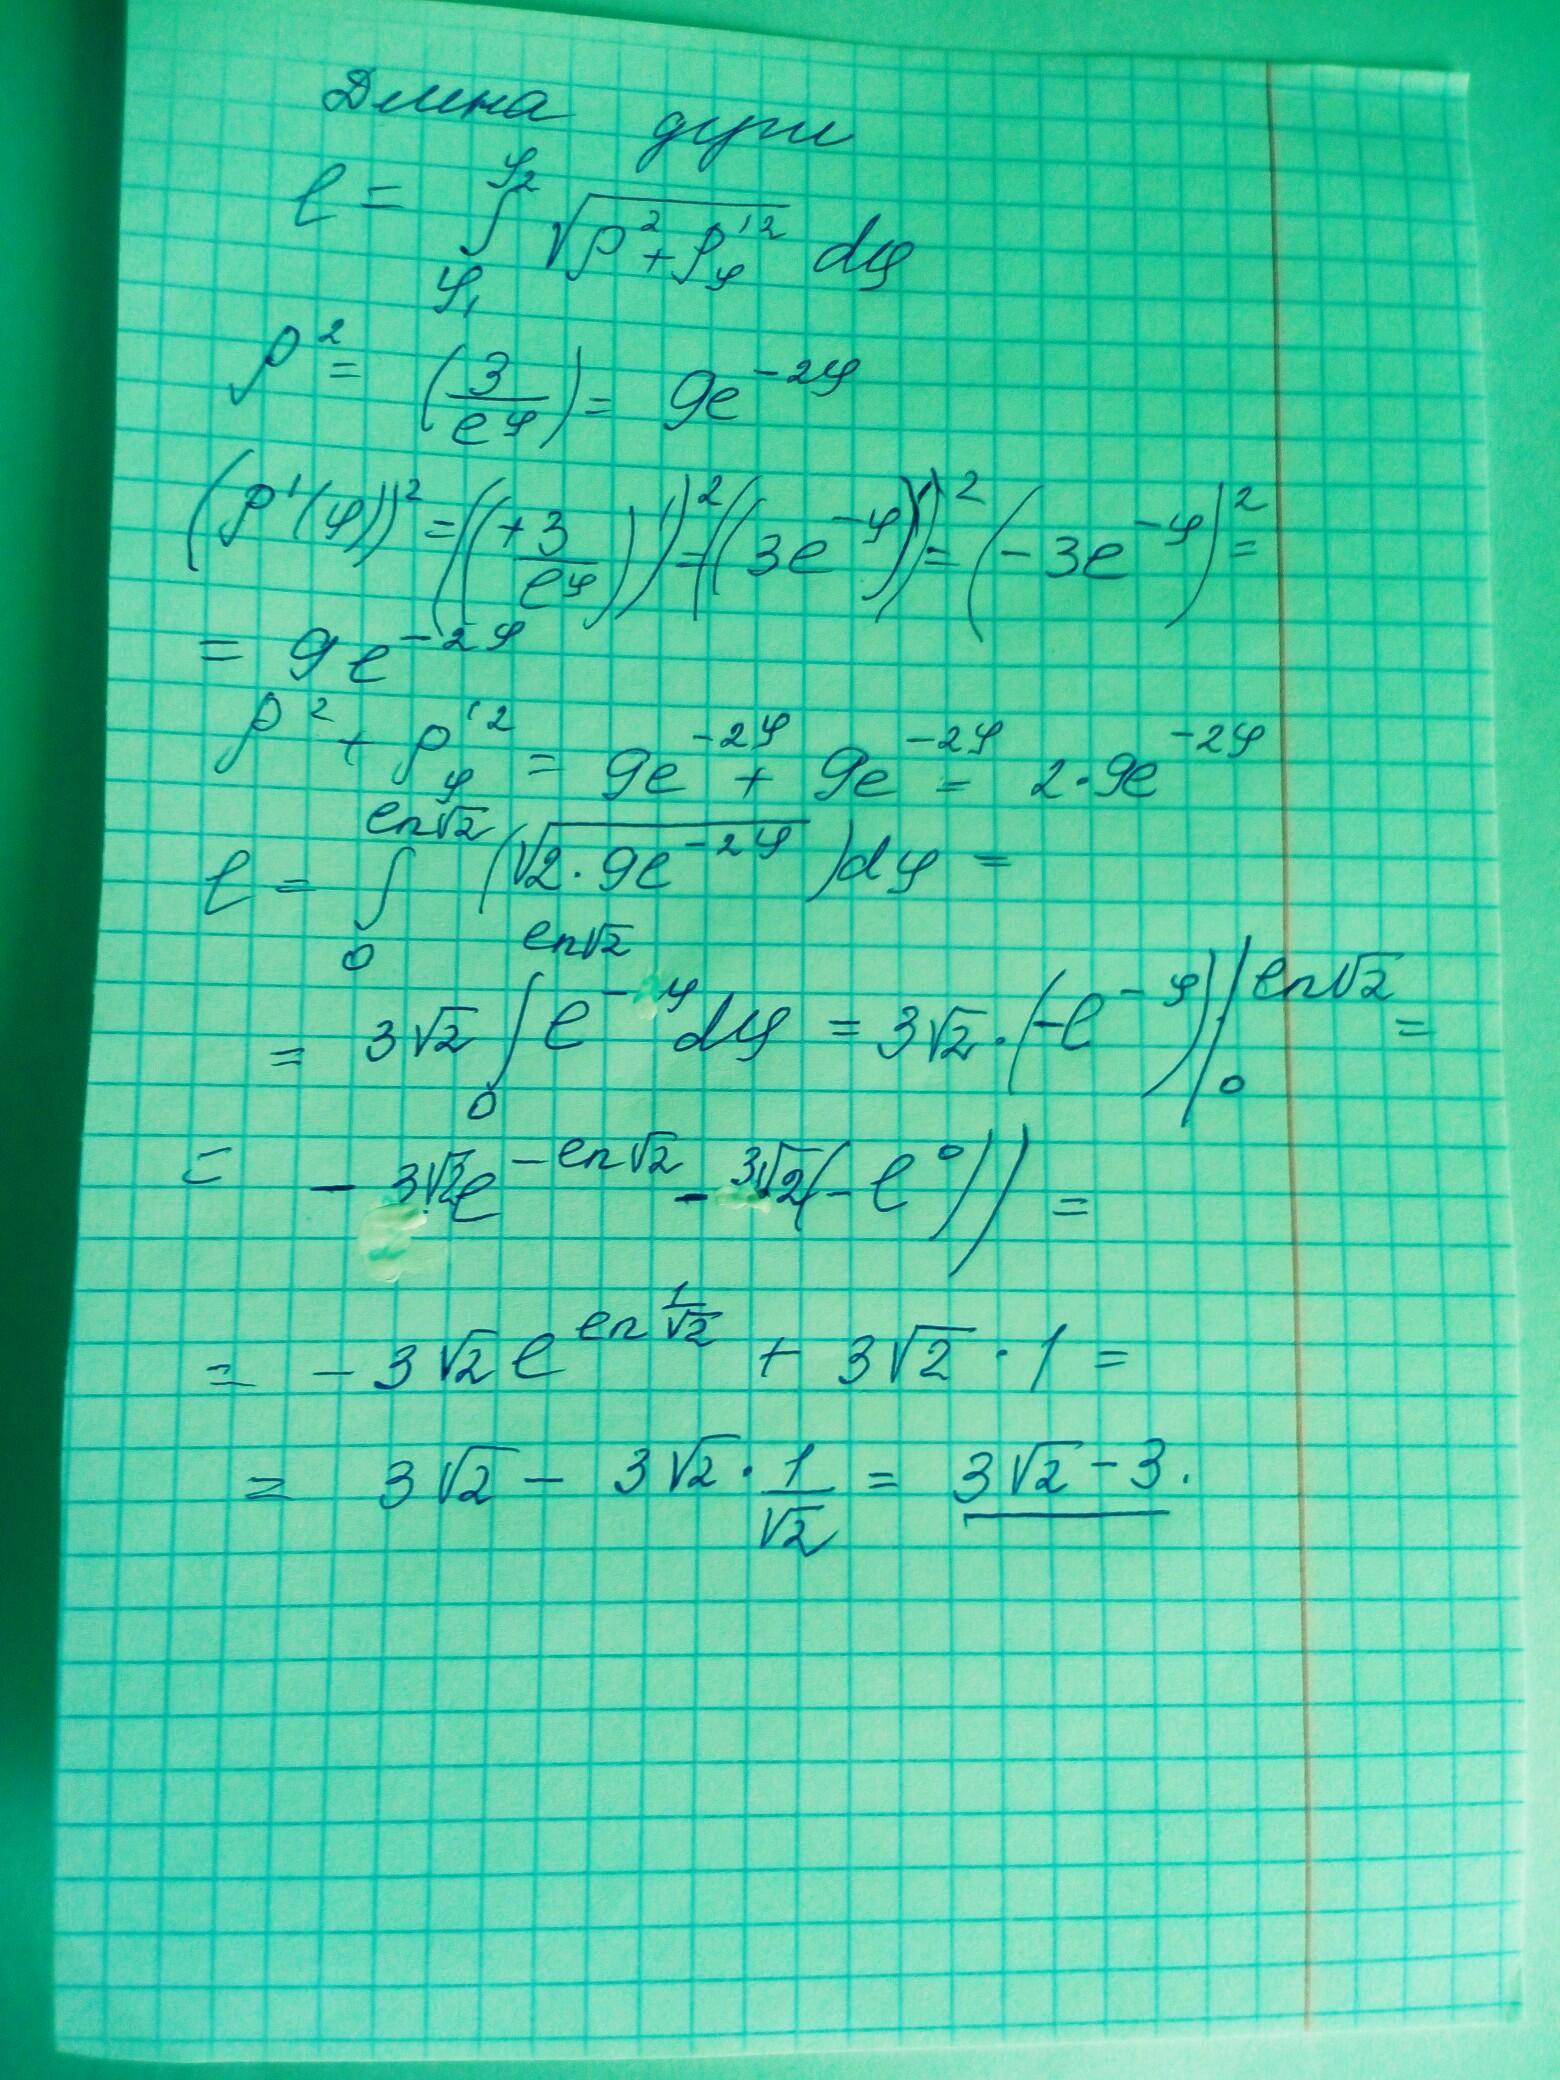 Длина дуги
l = ∫_{φ₁}^{φ₂} √(ρ² + ρ'_φ²) dφ
ρ² = (3/e^φ) = 9e^{-2φ}
(ρ'(φ))² = ((+3/e^φ)')² = ((3e^{-φ})')² = (-3e^{-φ})² =
= 9e^{-2φ}
ρ² + ρ'_φ² = 9e^{-2φ} + 9e^{-2φ} = 2·9e^{-2φ}
l = ∫_0^{ln√2} (√(2·9e^{-2φ})) dφ =
= 3√2 ∫_0^{ln√2} e^{-φ} dφ = 3√2·(-e^{-φ})|_0^{ln√2} =
= -3√2e^{-ln√2} - 3√2(-e^0)) =
= -3√2 e^{ln 1/√2} + 3√2·1 =
= 3√2 - 3√2·1/√2 = 3√2 - 3.